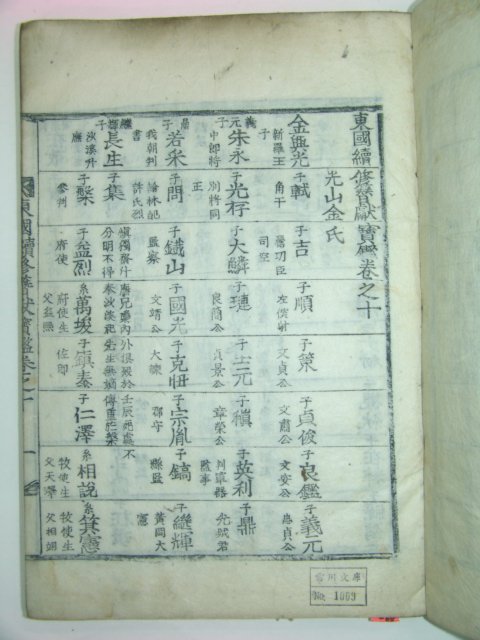 東國續修簪獻寶鑑卷之十
光山金氏
金興光 新羅王子
子軾 角干
子吉 司空
子順 左僕射
子策 文貞公
子貞俊 文肅公
子良鑑 文安公
子義元 忠貞公
義元子朱永 中郎將
子光存 別將同正
子大鱗
子璉 良簡公
子士元 貞景公
子稹 章榮公
子英利 判軍器監事
子鼎 光城君
鼎子若采 我朝判書
子問 翰林配許氏烈
子鐵山 監察
子國光 文靖公
子克忸 大諫
子宗胤 郡守
子鎬 縣監
子繼輝 黃岡大憲
繼輝子長生 沙溪升廡
子集
子槃 參判
子益烈 府使
系萬埈 府使生父益
子鎭泰 佐郎
子仁澤
系相說 牧使生父天澤
系箕憲 牧使生父相
東國續修簪獻寶鑑卷之十
文庫
No. 1069